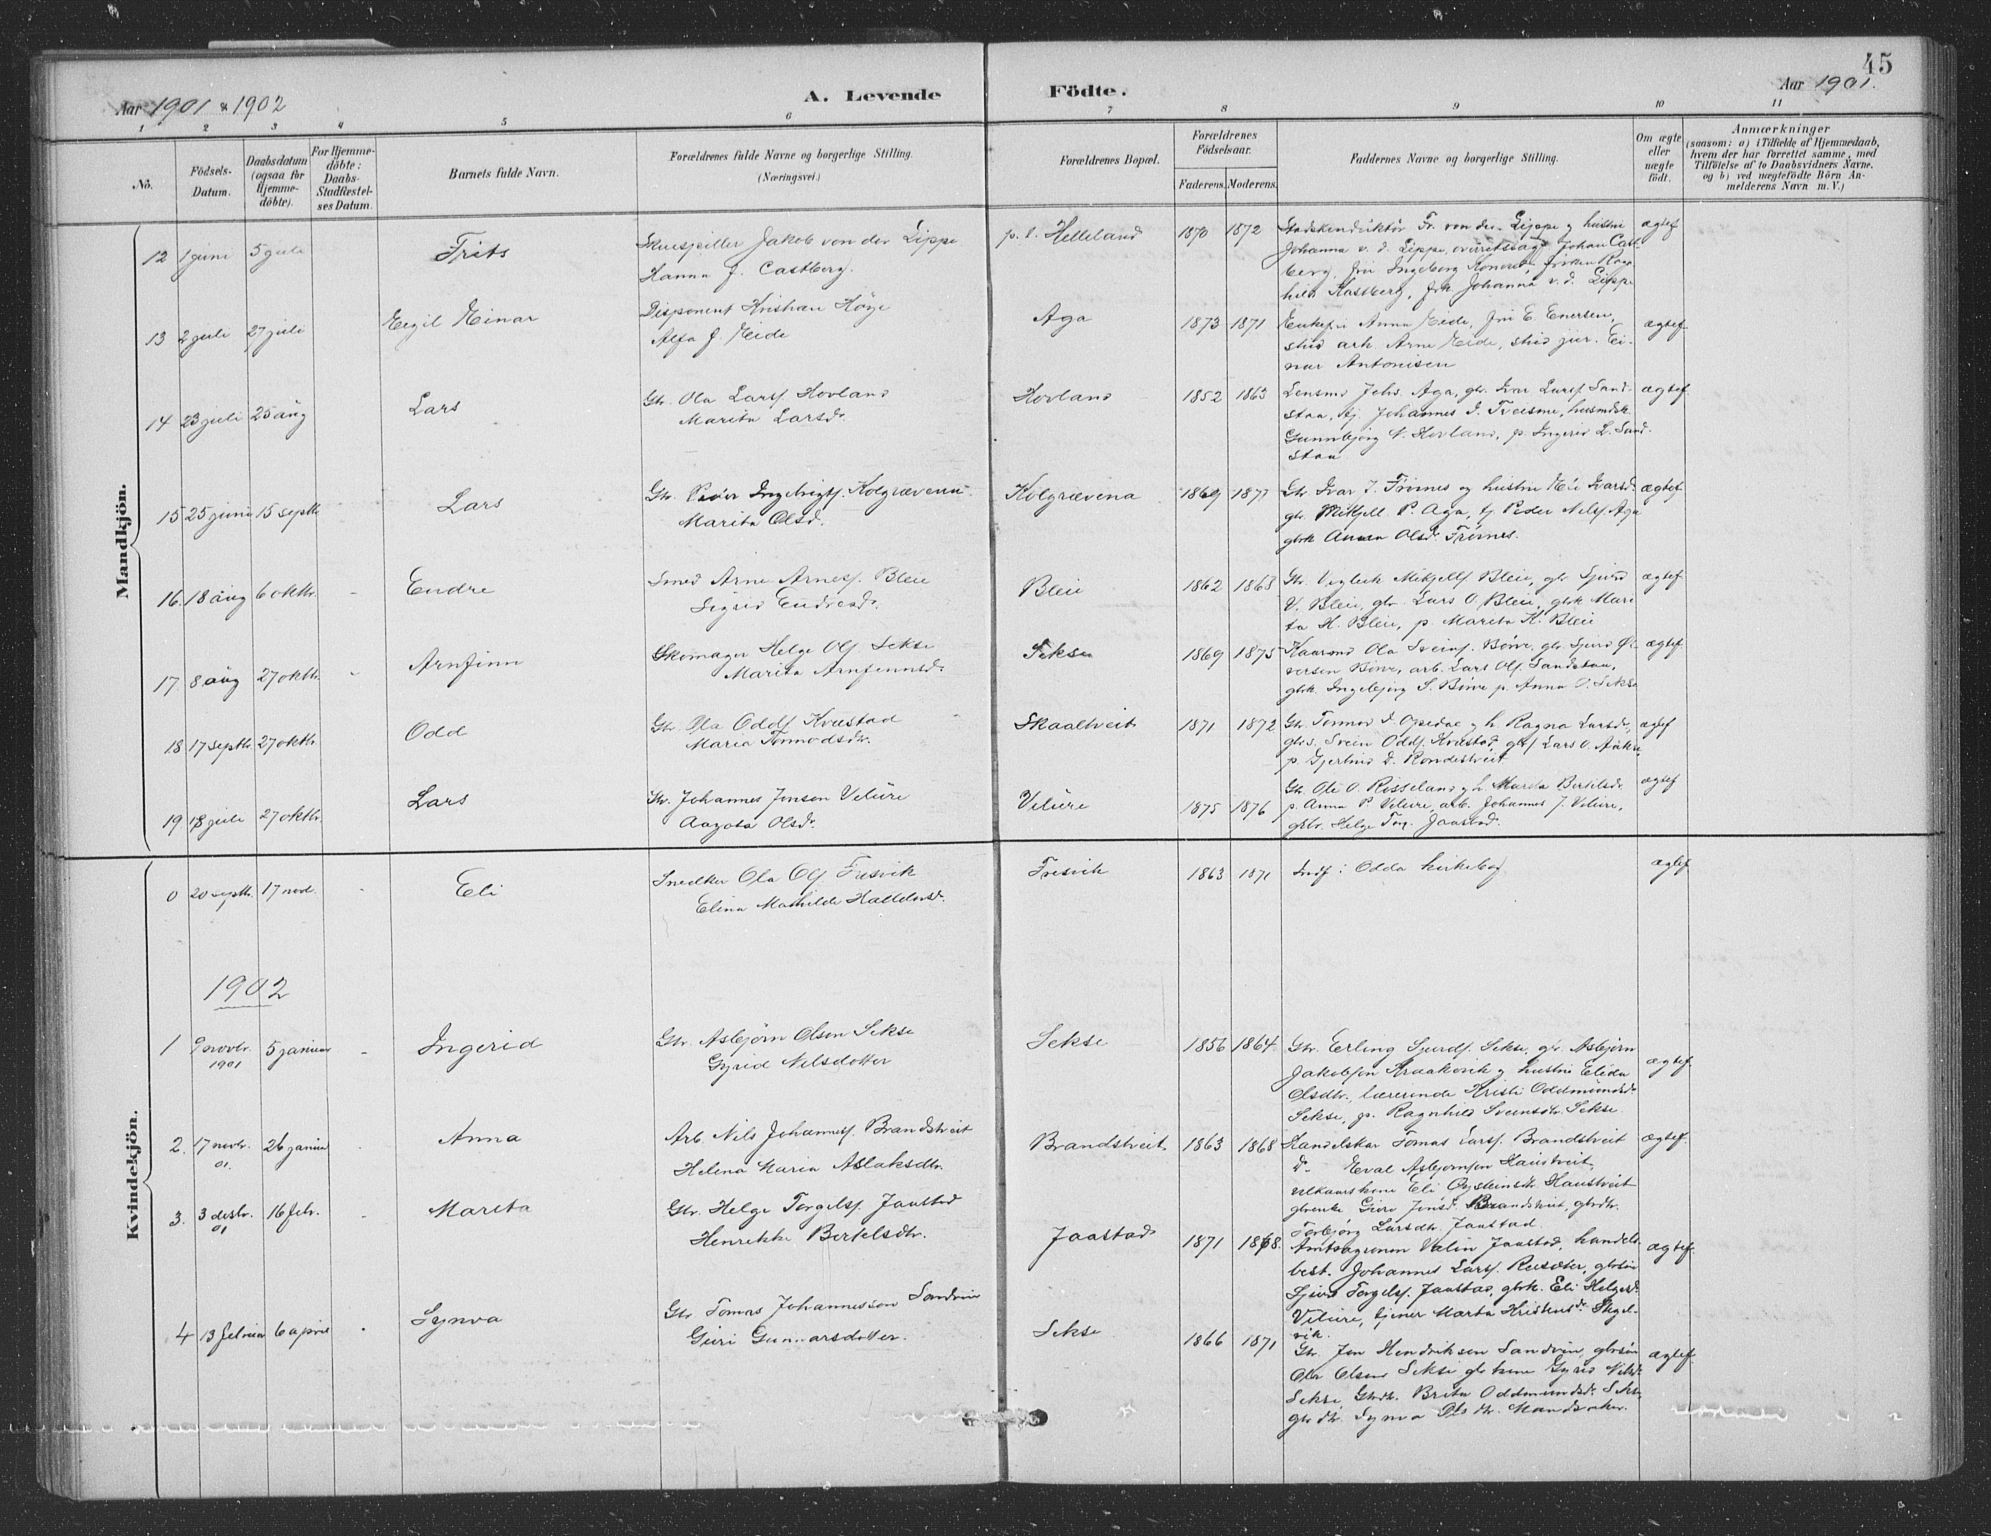 45
Aar 1901 & 1902
A. Levende
Födte.
Aar 1901.
1 2 3 4 5 6 7 8 9 10 11
No.
Födsels-Datum.
Daabsdatum (ogsaa for Hjemme-döbte).
For Hjemme-döbte: Daabs-Stadfæstel-ses Datum.
Barnets fulde Navn.
Forældrenes fulde Navne og borgerlige Stilling. (Næringsvei.)
Forældrenes Bopæl.
Forældrenes Födselsaar.
Faderens. Moderens.
Faddernes Navne og borgerlige Stilling.
Om ægte eller uægte födt.
Anmærkninger
(saasom: a) i Tilfælde af Hjemmedaab, hvem der har forrettet samme, med Tilföielse af to Daabsvidners Navne. og b) ved uægtefödte Börn An-melderens Navn m. V.)
Mandkjön.
12 1 juni 5 juli Frits
Skuespiller Jakob von der Lippe
Hanna f. Castberg.
p. t. Helleland 1870 1872
Stadskonduktör Fr. von der Lippe g hustru
Johanna v. d. Lippe, overretssagf Johan Cast-
berg, fru Ingeborg
Kastberg, frk Johanna v. d. Lippe
ægtef
13 2 juli 27 juli Eegil Einar
Disponent Kristian Höye
Alfa f. Eide
Aga 1873 1871
Enkefru Anna Eide, fru E. Enersen,
stud ark. Arne Eide, stud jur. Ei-
nar Antonisen
ægtef
14 23 juli 25 aug Lars
Gbr. Ola Larsf Hovland
Marita Larsdr.
Hovland 1852 1863
Lensmd Johs. Aga, gbr. Ivar Larsf Sand-
staa, tj. Johannes J. Tveisme, husmdsk.
Gunnbjörg N. Hovland, p. Ingerid L. Sand-
staa
ægtef
15 25 juni 15 septbr Lars
Gbr. Peder Ingebrigtf. Kolgrævenn
Marita Olsd.
Kolgrævena 1869 1871
Gbr Ivar J. Frönes og hustru Eli Ivarsdr
gbr. Mikjell P. Aga, tj. Peder Nilsf Aga
gbrk Anna Olsdr Frönes.
ægtef
16. 18 aug 6 oktbr. Endre
Smed Arne Arnesf. Bleie
Sigrid Endresdr.
Bleie 1862 1863
Gbr. Vigleik Mikjellf Bleie, gbr Sjurd
V. Bleie, gbr. Lars O. Bleie, gbrk Mari-
ta H. Bleie, p. Marita K. Bleie
ægtef
17. 8 aug 27 oktbr. Arnfinn
Skomager Helge Olf Sekse
Marita Arnfinnsdr
Sekse 1869 1875
Kaarmd Ola Sveinf. Börve, gbr Sjurd
Börve, arb. Lars Olf. Sandstaa,
gbrk. Ingebjörg S. Börve p. Anna O. Sekse
ægtef
18 17 septbr 27 oktbr. Odd
Gbr. Ola Oddf Kvæstad
Maria Tormodsdr.
Skaaltveit 1871 1872
Gbr. Tormod J. Opedal g h. Ragna Larsdr,
gbrs. Svein Oddf. Kvæstad, gbrf Lars O.
p. Gjertrud D. Rondestveit
ægtef
19 18 juli 27 oktbr. Lars
Gbr. Johannes Jonson Velure
Aagota Olsdr.
Velure 1875 1876
Gbr. Ole O. Rosseland g h Marita Bertelsdr
p. Anna P Velure, arb. Johannes J. Velure,
gbr. Helge Torg. Jaastad.
ægtef
Kvindekjön.
0 20 septbr. 17 nov. Eli
Snedker Ola Olf Fresvik
Elina Mathilde Halldorsdr.
Fresvik 1863 1871
Indf: Odda kirkebog
ægtef
1902
1 9 novbr. 1901 5 januar Ingerid
Gbr. Asbjörn Olson Sekse
Gyrid Nilsdotter
Sekse 1856 1864
Gbr. Erling Sjurdf. Sekse, gbr. Asbjörn
Jakobson Kraakevik g hustru Elida
Olsdtr. lærerinde Kristi Oddmundsdr
Sekse, p. Ragnhild Sveinsdtr. Sekse
ægtef.
2. 17 novbr. 01. 26 januar Anna
Arb. Nils Johannesf. Brandstveit
Helena Maria Aslaksdtr.
Brandstveit 1863 1868
Handelskar Tomas Larsf. Brandstveit
D. Asbjörnson Haustveit,
velkaarskone Eli Oysteinsdr Haustveit
gbrenke Guro Jonsd. Brandstveit, gbrdtr.
Torbjörg Larsdtr. Jaastad.
ægtef.
3. 3 desbr. 01 16 febr. Marita
Gbr. Helge Torgelsf. Jaastad
Henrikke Bertelsdtr.
Jaastad 1871 1868.
Amtsagronom Jaastad, handels-
best. Johannes Larsf. Reisæter, gbrsön
Sjurd Torgelsf. Jaastad, gbrk. Eli Helgesdr
Velure, tjener Marta Kristensdr Skjel-
vik.
ægtef.
4 13 februar 6 april Synva
Gbr Tomas Johannesson Sandvin
Guri Gunnarsdotter.
Sekse 1866 1871
Gbr. Jon Hendrikson Sandvin, gbrsön
Ola Olson Sekse gbrkone Gyrid Nilsdr
Sekse, Gbrdtr. Brita Oddmundsdr. Sekse
gbrdtr. Synva Olsdtr. Mandsaker.
ægtef.